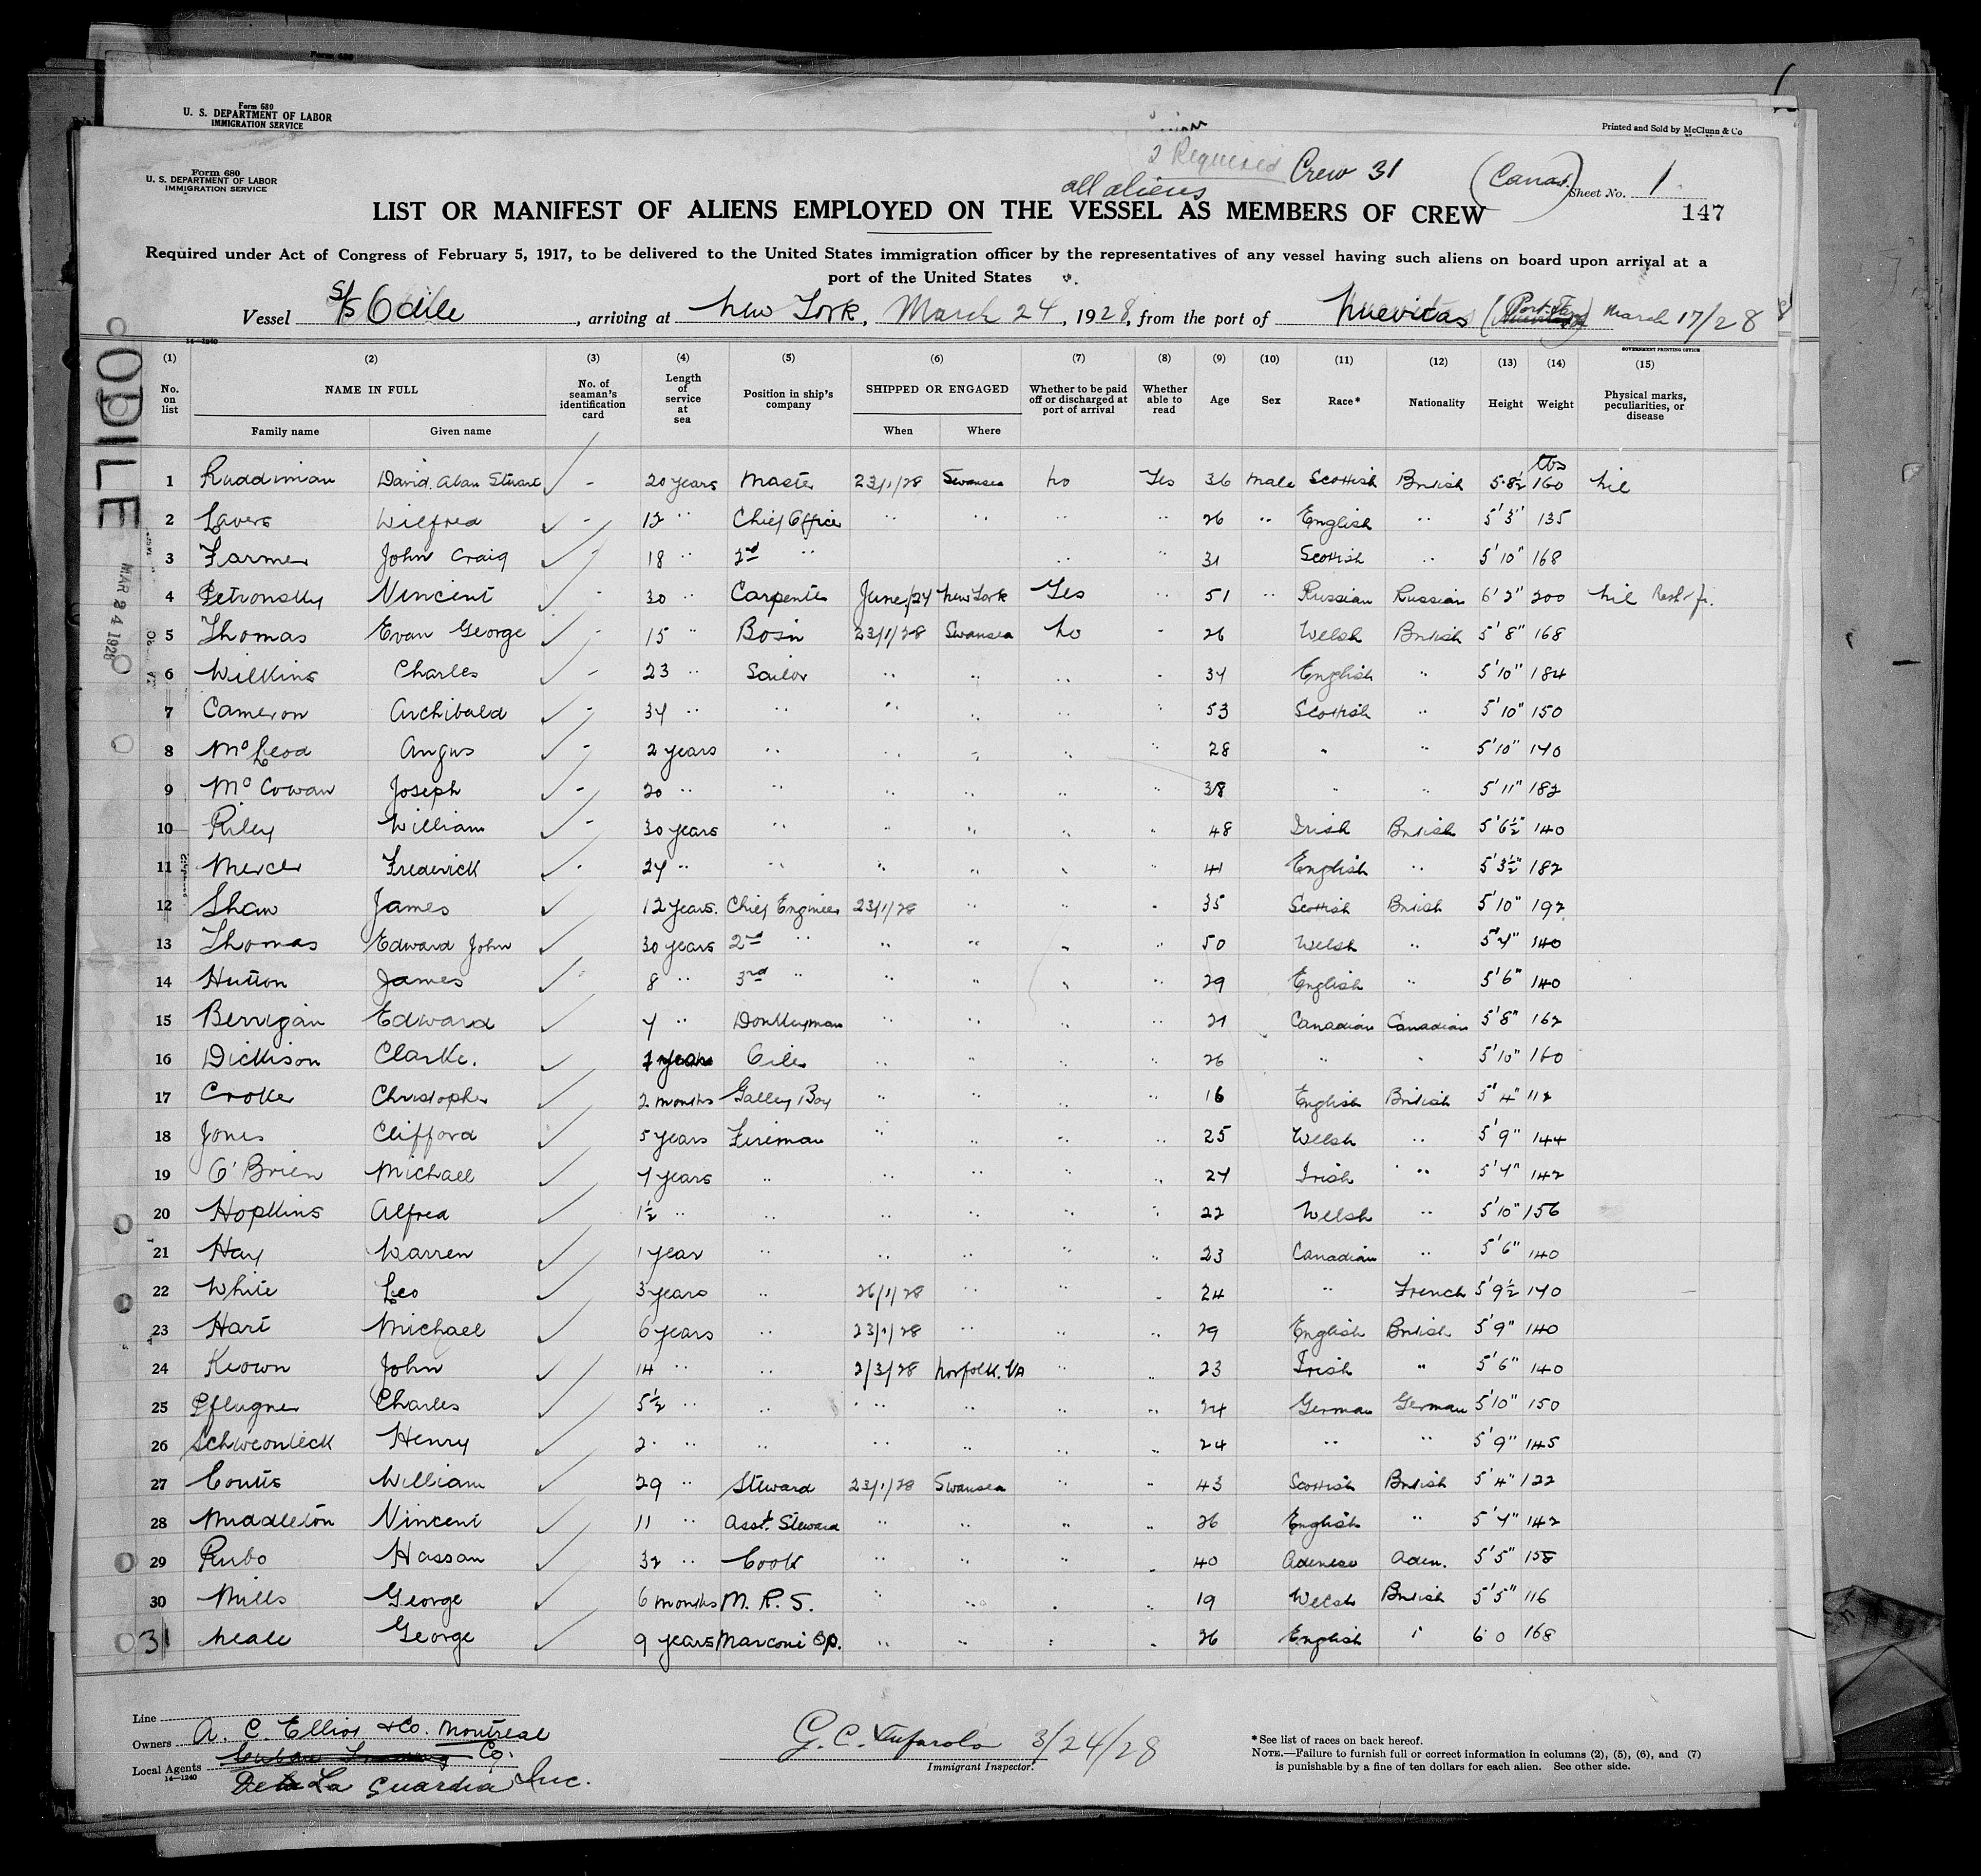 Form 680
U. S. DEPARTMENT OF LABOR
IMMIGRATION SERVICE
Printed and Sold by McClunn & Co
2 Required Crew 31
all aliens
Form 680
U. S. DEPARTMENT OF LABOR
IMMIGRATION SERVICE
Sheet No. 1
LIST OR MANIFEST OF ALIENS EMPLOYED ON THE VESSEL AS MEMBERS OF CREW
147
Required under Act of Congress of February 5, 1917, to be delivered to the United States immigration officer by the representatives of any vessel having such aliens on board upon arrival at a
port of the United States
Vessel S/S Odile, arriving at New York, March 24, 1928, from the port of Nuevitas March 17/28
14-1240
GOVERNMENT PRINTING OFFICE
(1) (2) (3) (4) (5) (6) (7) (8) (9) (10) (11) (12) (13) (14) (15)
No. on list NAME IN FULL No. of seaman's identification card Length of service at sea Position in ship's company SHIPPED OR ENGAGED Whether to be paid off or discharged at port of arrival Whether able to read Age Sex Race* Nationality Height Weight Physical marks, peculiarities, or disease
Family name Given name When Where
ODILE
MAR 24 1928
lbs
1 Ruddiman David. Alan Stuart - 20 years Master 23/1/28 Swansea No Yes 36 Male Scottish British 5-8½ 160 Nil
2 Lavers Wilfred - 12 " Chief Officer " " " " 26 " English " 5'3" 135
3 Farmer John Craig 18 " 2nd " " " 31 Scottish " 5'10" 168
4 Vincent - 30 " Carpenter June/24 New York Yes 51 " Russian Russian 6'2" 200 Nil
5 Thomas Evan George - 15 " Bosn 23/1/28 Swansea No " 26 Welsh British 5'8" 168
6 Wilkins Charles - 23 " Sailor " " " " 34 English " 5'10" 184
7 Cameron Archibald - 34 " " " " " " 53 Scottish " 5'10" 150
8 McLeod Angus - 2 years " " " " " 28 " " 5'10" 170
9 McCowan Joseph - 20 " " " " " " 38 " " 5'11" 182
10 Riley William - 30 years " " " " " 48 Irish British 5'6½" 140
11 Mercer Frederick - 27 " " " " " " 41 English " 5'3½" 182
12 Shaw James 12 years. Chief Engineer 23/1/28 " " " 35 Scottish British 5'10" 192
13 Thomas Edward John 30 years 2nd " " " " " 50 Welsh " 5'7" 140
14 Hutton James 8 " 3rd " " " " " 29 English " 5'6" 140
15 Berrigan Edward 7 " Donkeyman " " " " 21 Canadian Canadian 5'8" 162
16 Dickison Clarke. Oiler " " " " 26 " " 5'10" 160
17 Croker Christopher 2 months Galley Boy " " " " 16 English British 5'4" 112
18 Jones Clifford 5 years Fireman " " " " 25 Welsh " 5'9" 144
19 O'Brien Michael 7 years " " " " " 27 Irish " 5'7" 142
20 Hopkins Alfred 1½ " " " " " " 22 Welsh " 5'10" 156
21 Hay Warren 1 year " " " " " 23 Canadian " 5'6" 140
22 White Leo 3 years " 26/1/28 " " " 24 " French 5'9½ 170
23 Hart Michael 6 years " 23/1/28 " " " 29 English British 5'9" 140
24 Keown John 14 " " 2/3/28 Norfolk. VA " " 23 Irish " 5'6" 140
25 Pflugner Charles 5½ " " " " " " 24 German German 5'10" 150
26 Henry 2 " " " " " " 24 " " 5'9" 145
27 Coutts William 29 " Steward 23/1/28 Swansea " " 43 Scottish British 5'4" 122
28 Middleton Vincent 11 " Asst. Steward " " " " 26 English " 5'7" 142
29 Rubo Hassan 32 " Cook " " " " 40 Adenese Aden. 5'5" 158
30 Mills George 6 months M. R. S. " " " " 19 Welsh British 5'5" 116
31 Neale George 9 years Marconi Op. " " " " 26 English " 6 0 168
Line
Owners A. C. Elliot & Co. Montreal
Co.
Local Agents De La Guardia Inc.
14—1240
G. C. 3/24/28
Immigrant Inspector.
*See list of races on back hereof.
NOTE.—Failure to furnish full or correct information in columns (2), (5), (6), and (7)
is punishable by a fine of ten dollars for each alien. See other side.